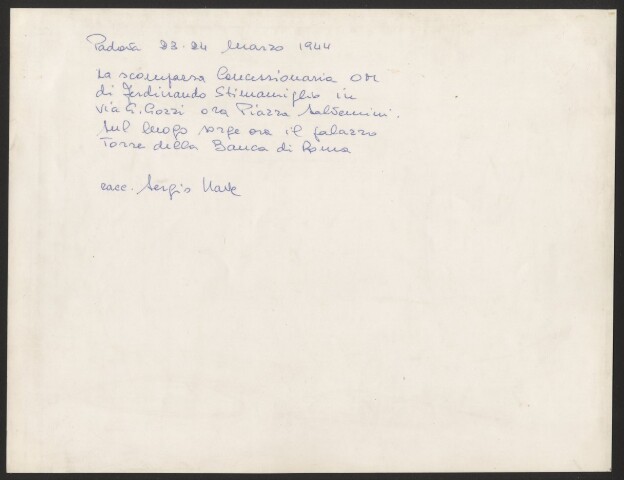 Padova 23-24 Marzo 1944
La scomparsa Concessionaria OM
di Ferdinando Stimamiglio in
via G. Gozzi ora Piazza Salvemini.
Sul luogo sorge ora il palazzo
Torre della Banca di Roma
racc. Sergio